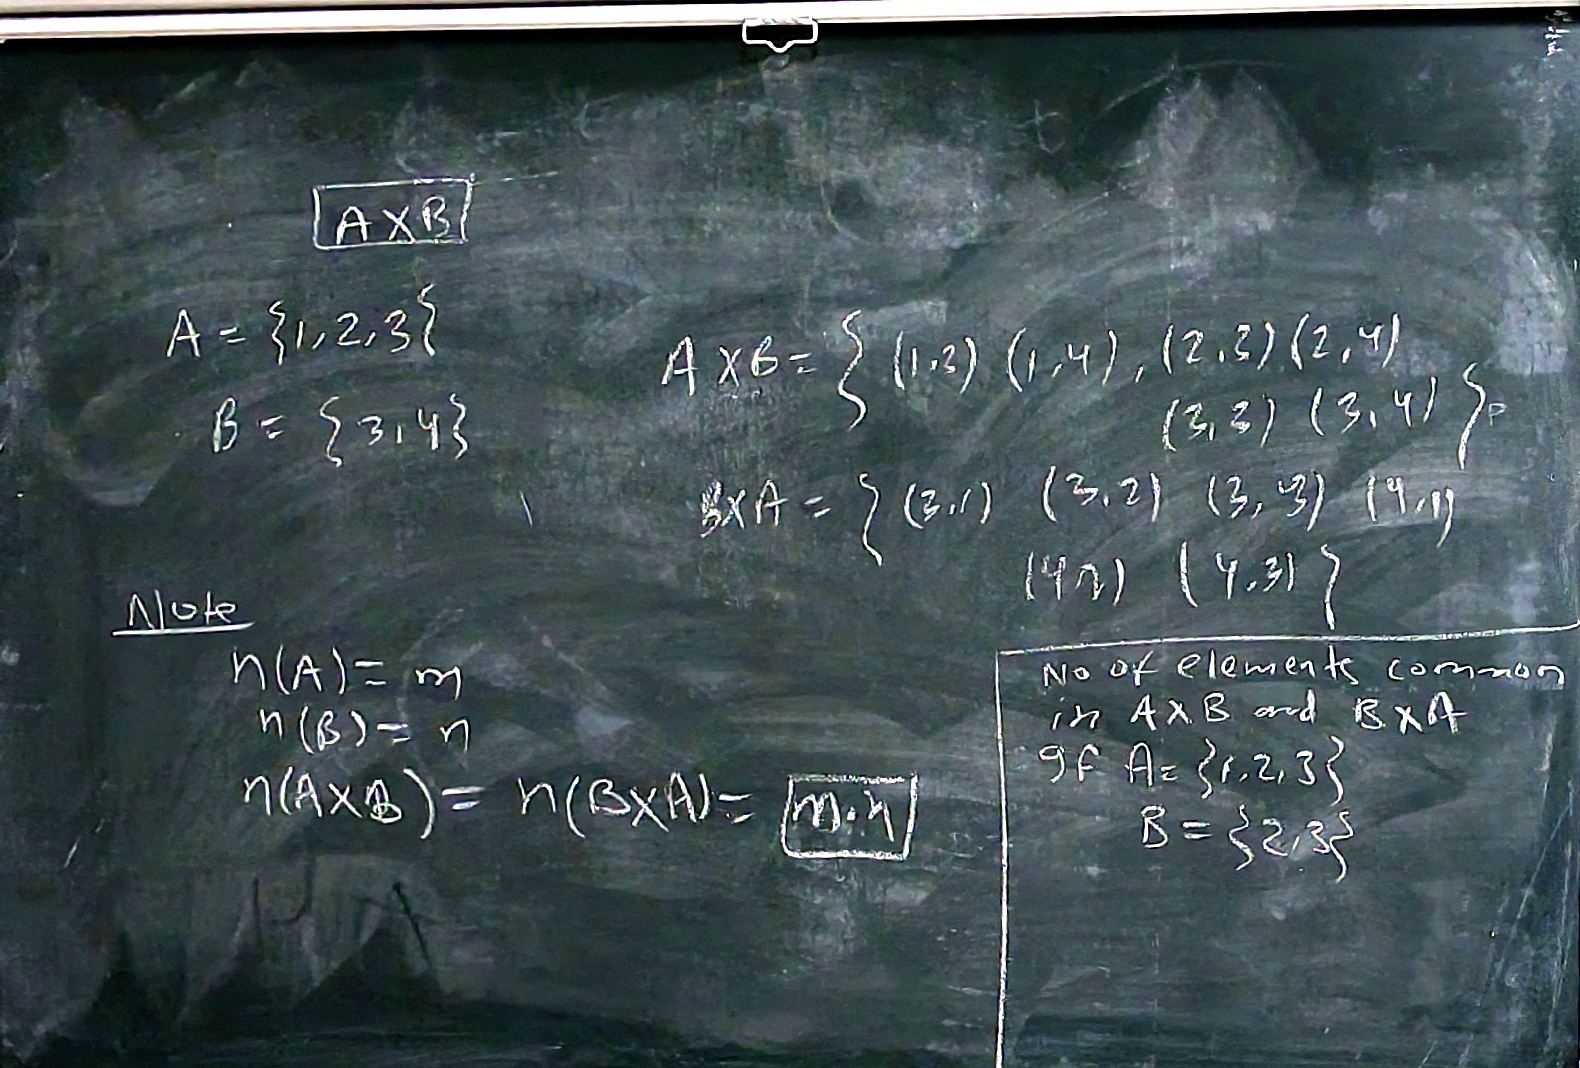 A X B
A = {1, 2, 3}
B = {3, 4}
A X B = { (1,3) (1,4), (2,3) (2,4)
(3,3) (3,4) }
B X A = { (3,1) (3,2) (3,3) (4,1)
(4,2) (4,3) }
Note
n(A) = m
n(B) = n
n(A X B) = n(B X A) = m.n
No of elements common
in A X B and B X A
If A = {1, 2, 3}
B = {2, 3}